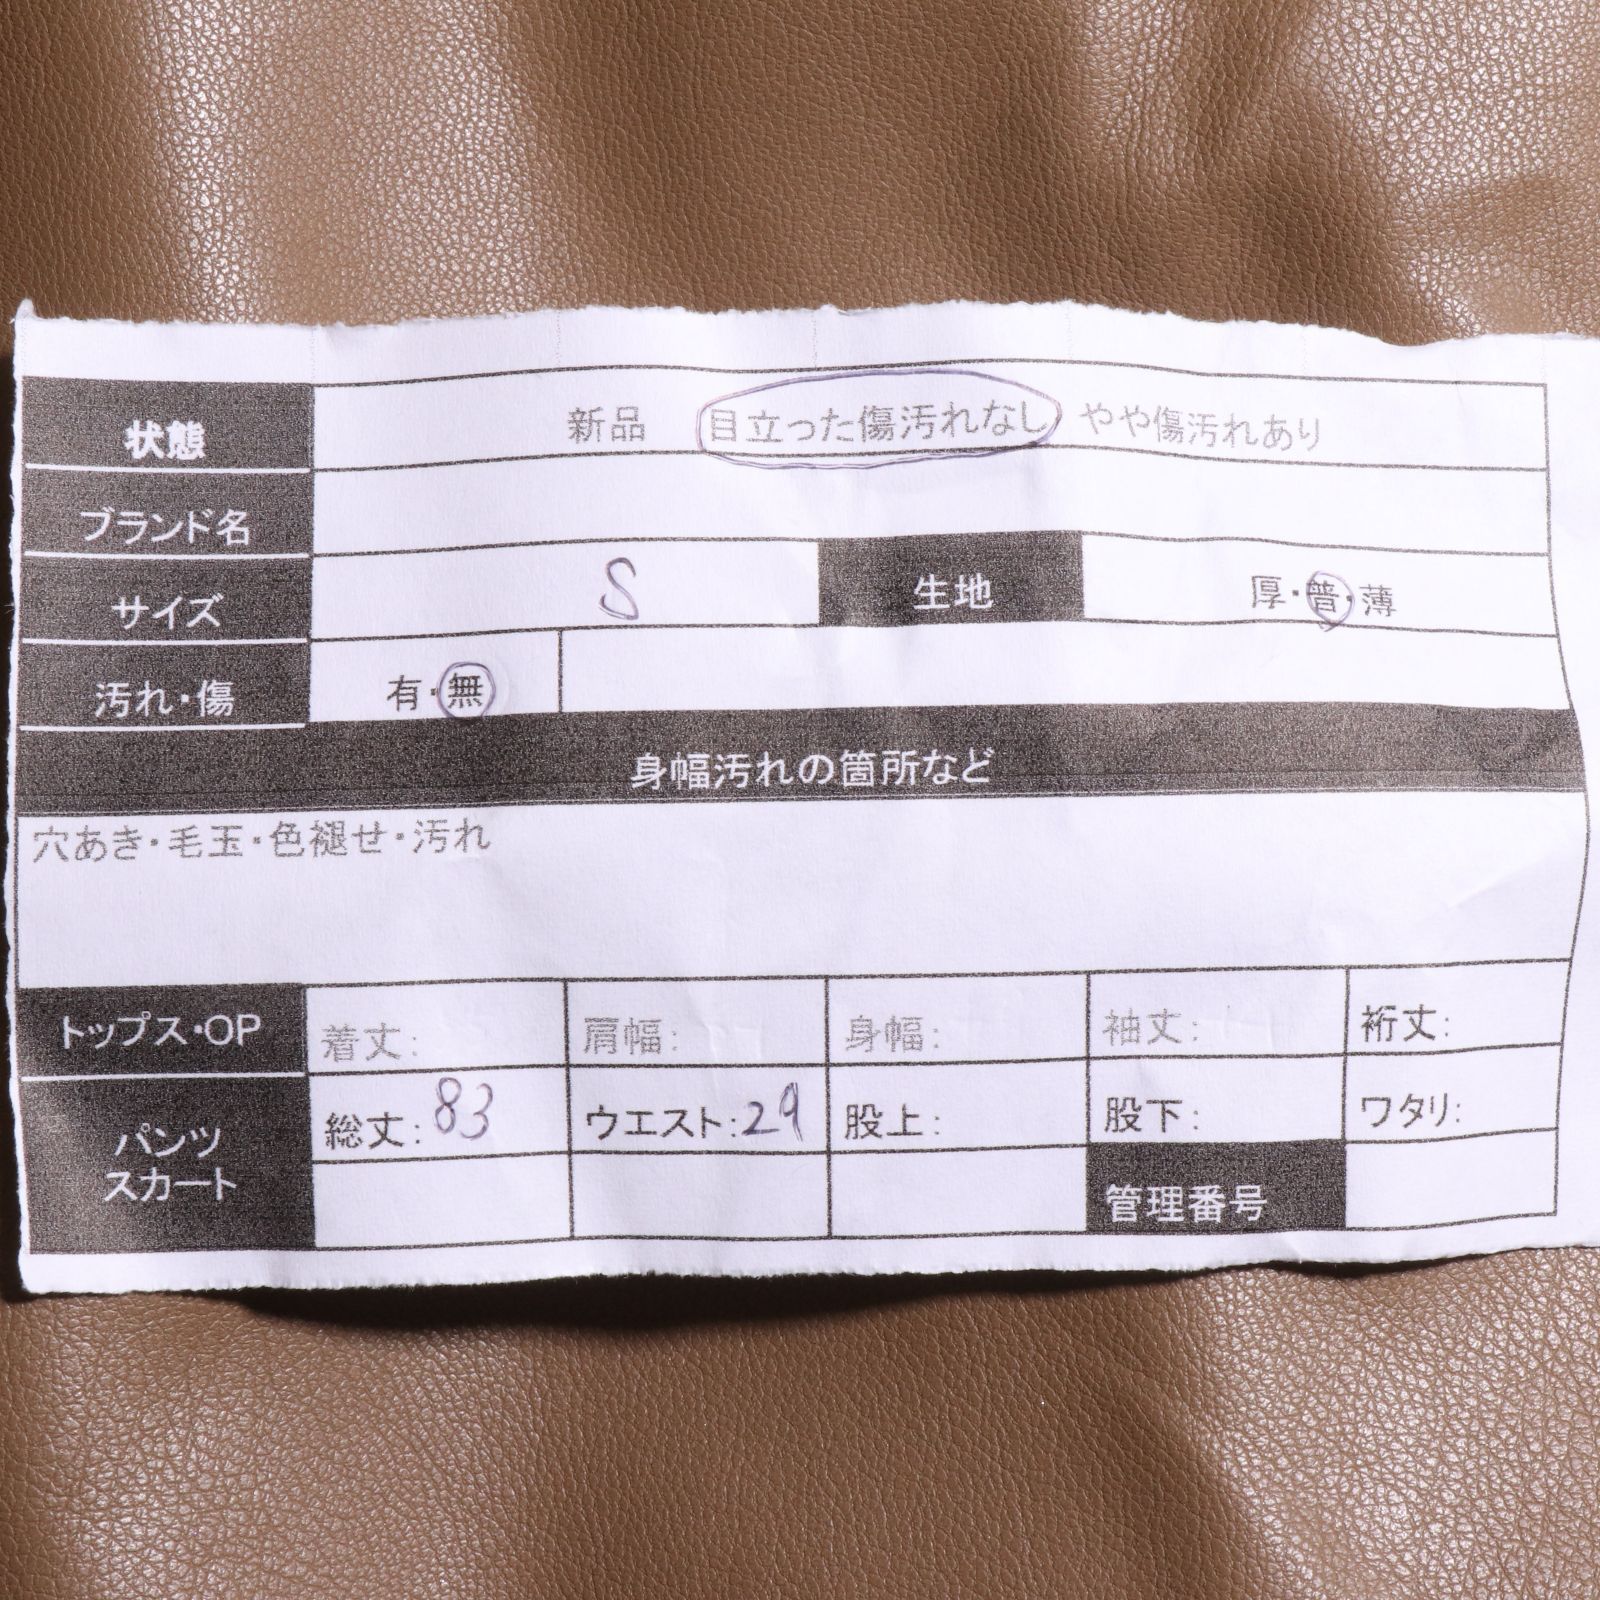 状態 新品 目立った傷汚れなし やや傷汚れあり
ブランド名
サイズ S 生地 厚・普・薄
汚れ・傷 有・無
身幅汚れの箇所など
穴あき・毛玉・色褪せ・汚れ
トップス・OP 着丈: 肩幅: 身幅: 袖丈: 裄丈:
パンツ スカート 総丈:83 ウエスト:29 股上: 股下: ワタリ:
管理番号